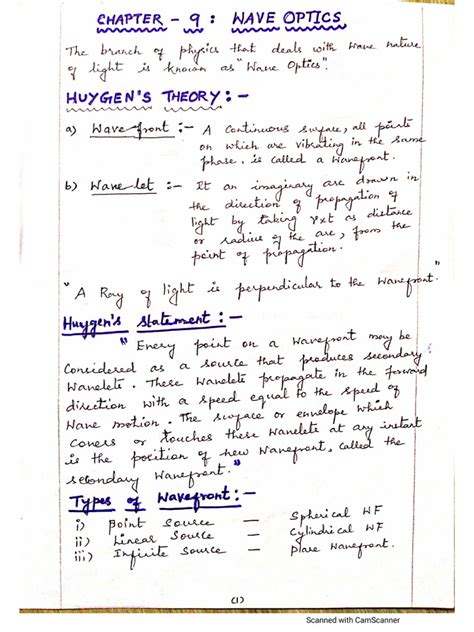 CHAPTER - 9 : WAVE OPTICS
The branch of physics that deals with wave nature
of light is known as "Wave Optics".
HUYGEN'S THEORY :-
a) Wavefront :- A Continuous surface, all points
on which are vibrating in the same
phase. is called a Wavefront.
b) Wavelet :- It an imaginary arc drawn in
the direction of propagation of
light by taking vxt as distance
or radius of the arc, from the
point of propagation.
"A Ray of light is perpendicular to the Wavefront."
Huygen's Statement :-
"Every point on a Wavefront may be
Considered as a source that produces secondary
Wavelets. These Wavelets propagate in the forward
direction with a speed equal to the speed of
Wave motion. The surface or envelope which
Covers or touches these Wavelets at any instant
is the position of new Wavefront, called the
secondary Wavefront."
Types of Wavefront :-
i) Point Source — Spherical WF
ii) Linear Source — Cylindrical WF
iii) Infinite Source — Plane Wavefront.
(1)
Scanned with CamScanner